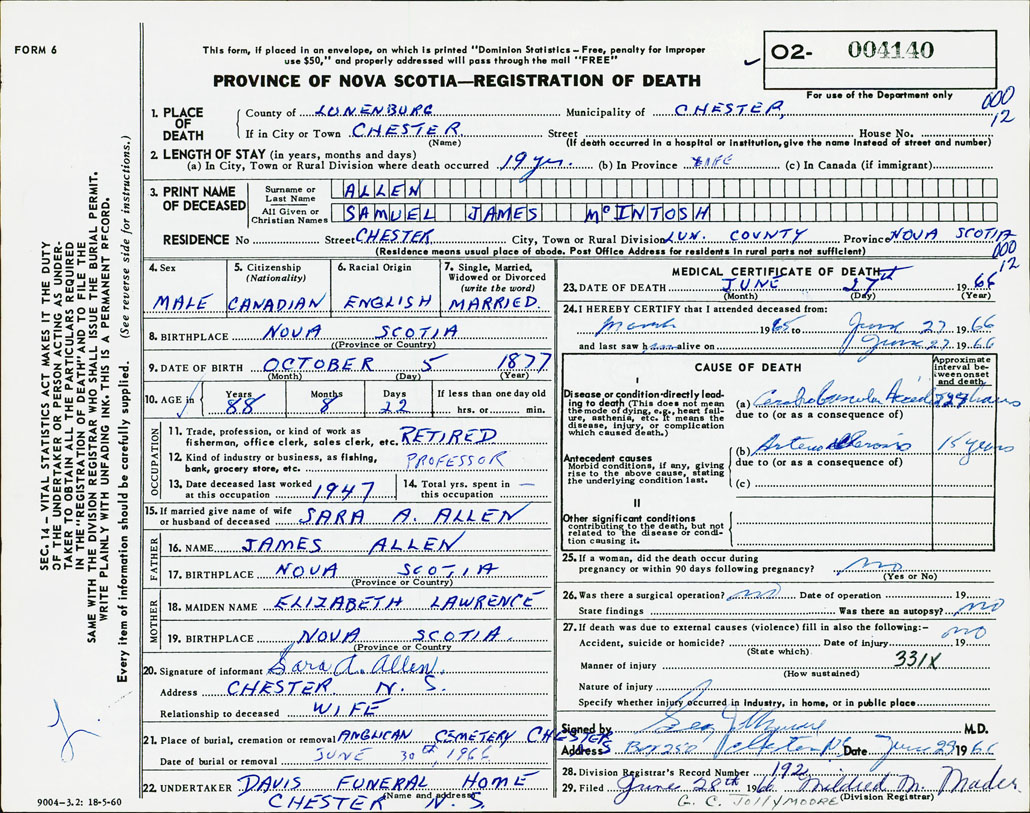 FORM 6
This form, if placed in an envelope, on which is printed "Dominion Statistics – Free, penalty for improper
use $50," and properly addressed will pass through the mail "FREE"
PROVINCE OF NOVA SCOTIA—REGISTRATION OF DEATH
02- 004140
For use of the Department only
000
12
1. PLACE OF DEATH
County of LUNENBURG Municipality of CHESTER,
If in City or Town CHESTER. Street House No.
(Name) (If death occurred in a hospital or institution, give the name instead of street and number)
2. LENGTH OF STAY (in years, months and days)
(a) In City, Town or Rural Division where death occurred 19 yr. (b) In Province LIFE (c) In Canada (if immigrant)
3. PRINT NAME OF DECEASED
Surname or Last Name ALLEN
All Given or Christian Names SAMUEL JAMES McINTOSH
RESIDENCE No Street CHESTER City, Town or Rural Division LUN. COUNTY Province NOVA SCOTIA
(Residence means usual place of abode. Post Office Address for residents in rural parts not sufficient)
000
12
4. Sex
MALE
5. Citizenship (Nationality)
CANADIAN
6. Racial Origin
ENGLISH
7. Single, Married, Widowed or Divorced (write the word)
MARRIED.
8. BIRTHPLACE NOVA SCOTIA
((Province or Country)
9. DATE OF BIRTH OCTOBER 5 1877
(Month) (Day) (Year)
10. AGE in
Years Months Days If less than one day old
88 8 22 hrs. or min.
OCCUPATION
11. Trade, profession, or kind of work as
fisherman, office clerk, sales clerk, etc. RETIRED
12. Kind of industry or business, as fishing,
bank, grocery store, etc. PROFESSOR
13. Date deceased last worked
at this occupation 1947
14. Total yrs. spent in
this occupation —
15. If married give name of wife
or husband of deceased SARA A. ALLEN
FATHER
16. NAME JAMES ALLEN
17. BIRTHPLACE NOVA SCOTIA
(Province or Country)
MOTHER
18. MAIDEN NAME ELIZABETH LAWRENCE
19. BIRTHPLACE NOVA SCOTIA.
(Province or Country
20. Signature of informant Sara A. Allen.
Address CHESTER N. S.
Relationship to deceased WIFE
21. Place of burial, cremation or removal ANGLICAN CEMETERY CHESTER
Date of burial or removal JUNE 30th, 1966
22. UNDERTAKER DAVIS FUNERAL HOME
(Name and address)
CHESTER N. S.
9004-3.2: 18-5-60
MEDICAL CERTIFICATE OF DEATH
23. DATE OF DEATH JUNE 27th 1966
(Month) (Day) (Year)
24. I HEREBY CERTIFY that I attended deceased from:
March 1965 to June 27 1966
and last saw him alive on June 27 1966
CAUSE OF DEATH
Approximate interval between onset and death
I
Disease or condition directly leading to death (This does not mean
the mode of dying, e.g., heart failure, asthenia, etc. It means the
disease, injury, or complication
which caused death.)
(a)
due to (or as a consequence of)
Antecedent causes
Morbid conditions, if any, giving
rise to the above cause, stating
the underlying condition last.
(b) 15 years
due to (or as a consequence of)
(c)
II
Other significant conditions
contributing to the death, but not
related to the disease or condition causing it.
25. If a woman, did the death occur during
pregnancy or within 90 days following pregnancy? no
(Yes or No)
26. Was there a surgical operation? no Date of operation 19
State findings Was there an autopsy? no
27. If death was due to external causes (violence) fill in also the following:—
no
Accident, suicide or homicide? Date of injury 19
(State which)
331X
Manner of injury
(How sustained)
Nature of injury
Specify whether injury occurred in industry, in home, or in public place
Signed by M.D.
Address Box 250 Date June 29 1966
28. Division Registrar's Record Number 192
29. Filed June 28th 1966 Mildred M. Mader.
(Division Registrar)
G. C. JOLLYMOORE
SEC. 14 – VITAL STATISTICS ACT MAKES IT THE DUTY
OF THE UNDERTAKER OR PERSON ACTING AS UNDER-
TAKER TO OBTAIN ALL THE PARTICULARS REQUIRED
IN THE "REGISTRATION OF DEATH" AND TO FILE THE
SAME WITH THE DIVISION REGISTRAR WHO SHALL ISSUE THE BURIAL PERMIT.
WRITE PLAINLY WITH UNFADING INK. THIS IS A PERMANENT RECORD.
Every item of information should be carefully supplied. (See reverse side for instructions.)